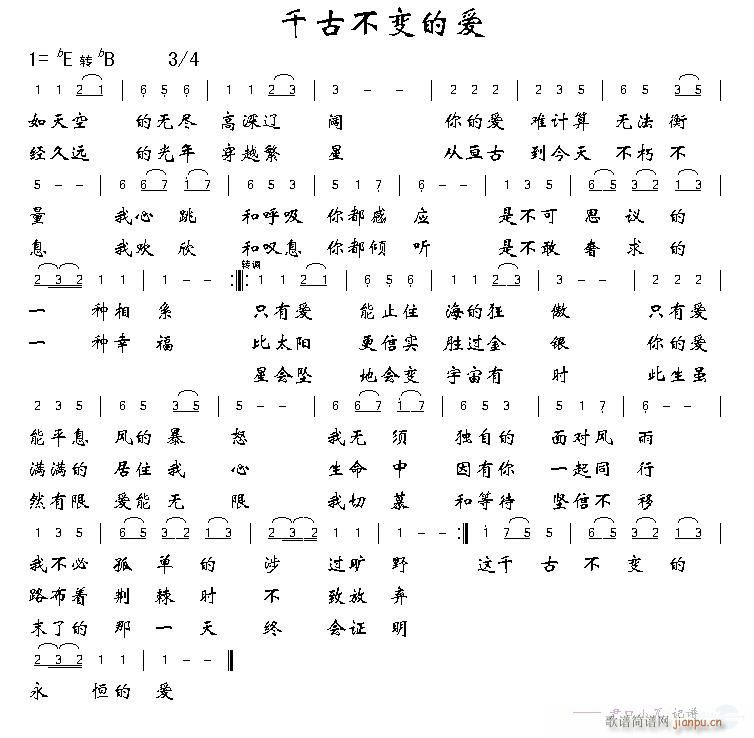 千古不变的爱
1= ᵇE 转 ᵇB 3/4
1 1 2 1 | 6 5 6 | 1 1 2 3 | 3 - - | 2 2 2 | 2 3 5 | 6 5 3 5 |
如天空 的无尽 高深辽 阔 你的爱 难计算 无法衡
经久远 的光年 穿越繁 星 从亘古 到今天 不朽不
5 - - | 6 6 7 1 7 | 6 5 3 | 5 1 7 | 6 - - | 1 3 5 | 6 5 3 2 1 3 |
量 我心跳 和呼吸 你都感 应 是不可 思议的
息 我欢欣 和叹息 你都倾 听 是不敢 奢求的
转调
2 3 2 1 1 | 1 - - :‖: 1 1 2 1 | 6 5 6 | 1 1 2 3 | 3 - - | 2 2 2 |
一 种相系 只有爱 能止住 海的狂 傲 只有爱
一 种幸福 比太阳 更信实 胜过金 银 你的爱
星会坠 地会变 宇宙有 时 此生虽
2 3 5 | 6 5 3 5 | 5 - - | 6 6 7 1 7 | 6 5 3 | 5 1 7 | 6 - - |
能平息 风的暴 怒 我无须 独自的 面对风 雨
满满的 居住我 心 生命中 因有你 一起同 行
然有限 爱能无 限 我切慕 和等待 坚信不 移
1 3 5 | 6 5 3 2 1 3 | 2 3 2 1 1 | 1 - - :‖ 1 7 5 5 | 6 5 3 2 1 3 |
我不必 孤单的 涉 过旷野 这千古 不变的
路布着 荆棘时 不 致放弃
末了的 那一天 终 会证明
2 3 2 1 1 | 1 - - ‖
永 恒的爱
记谱
歌谱简谱网
jianpu.cn